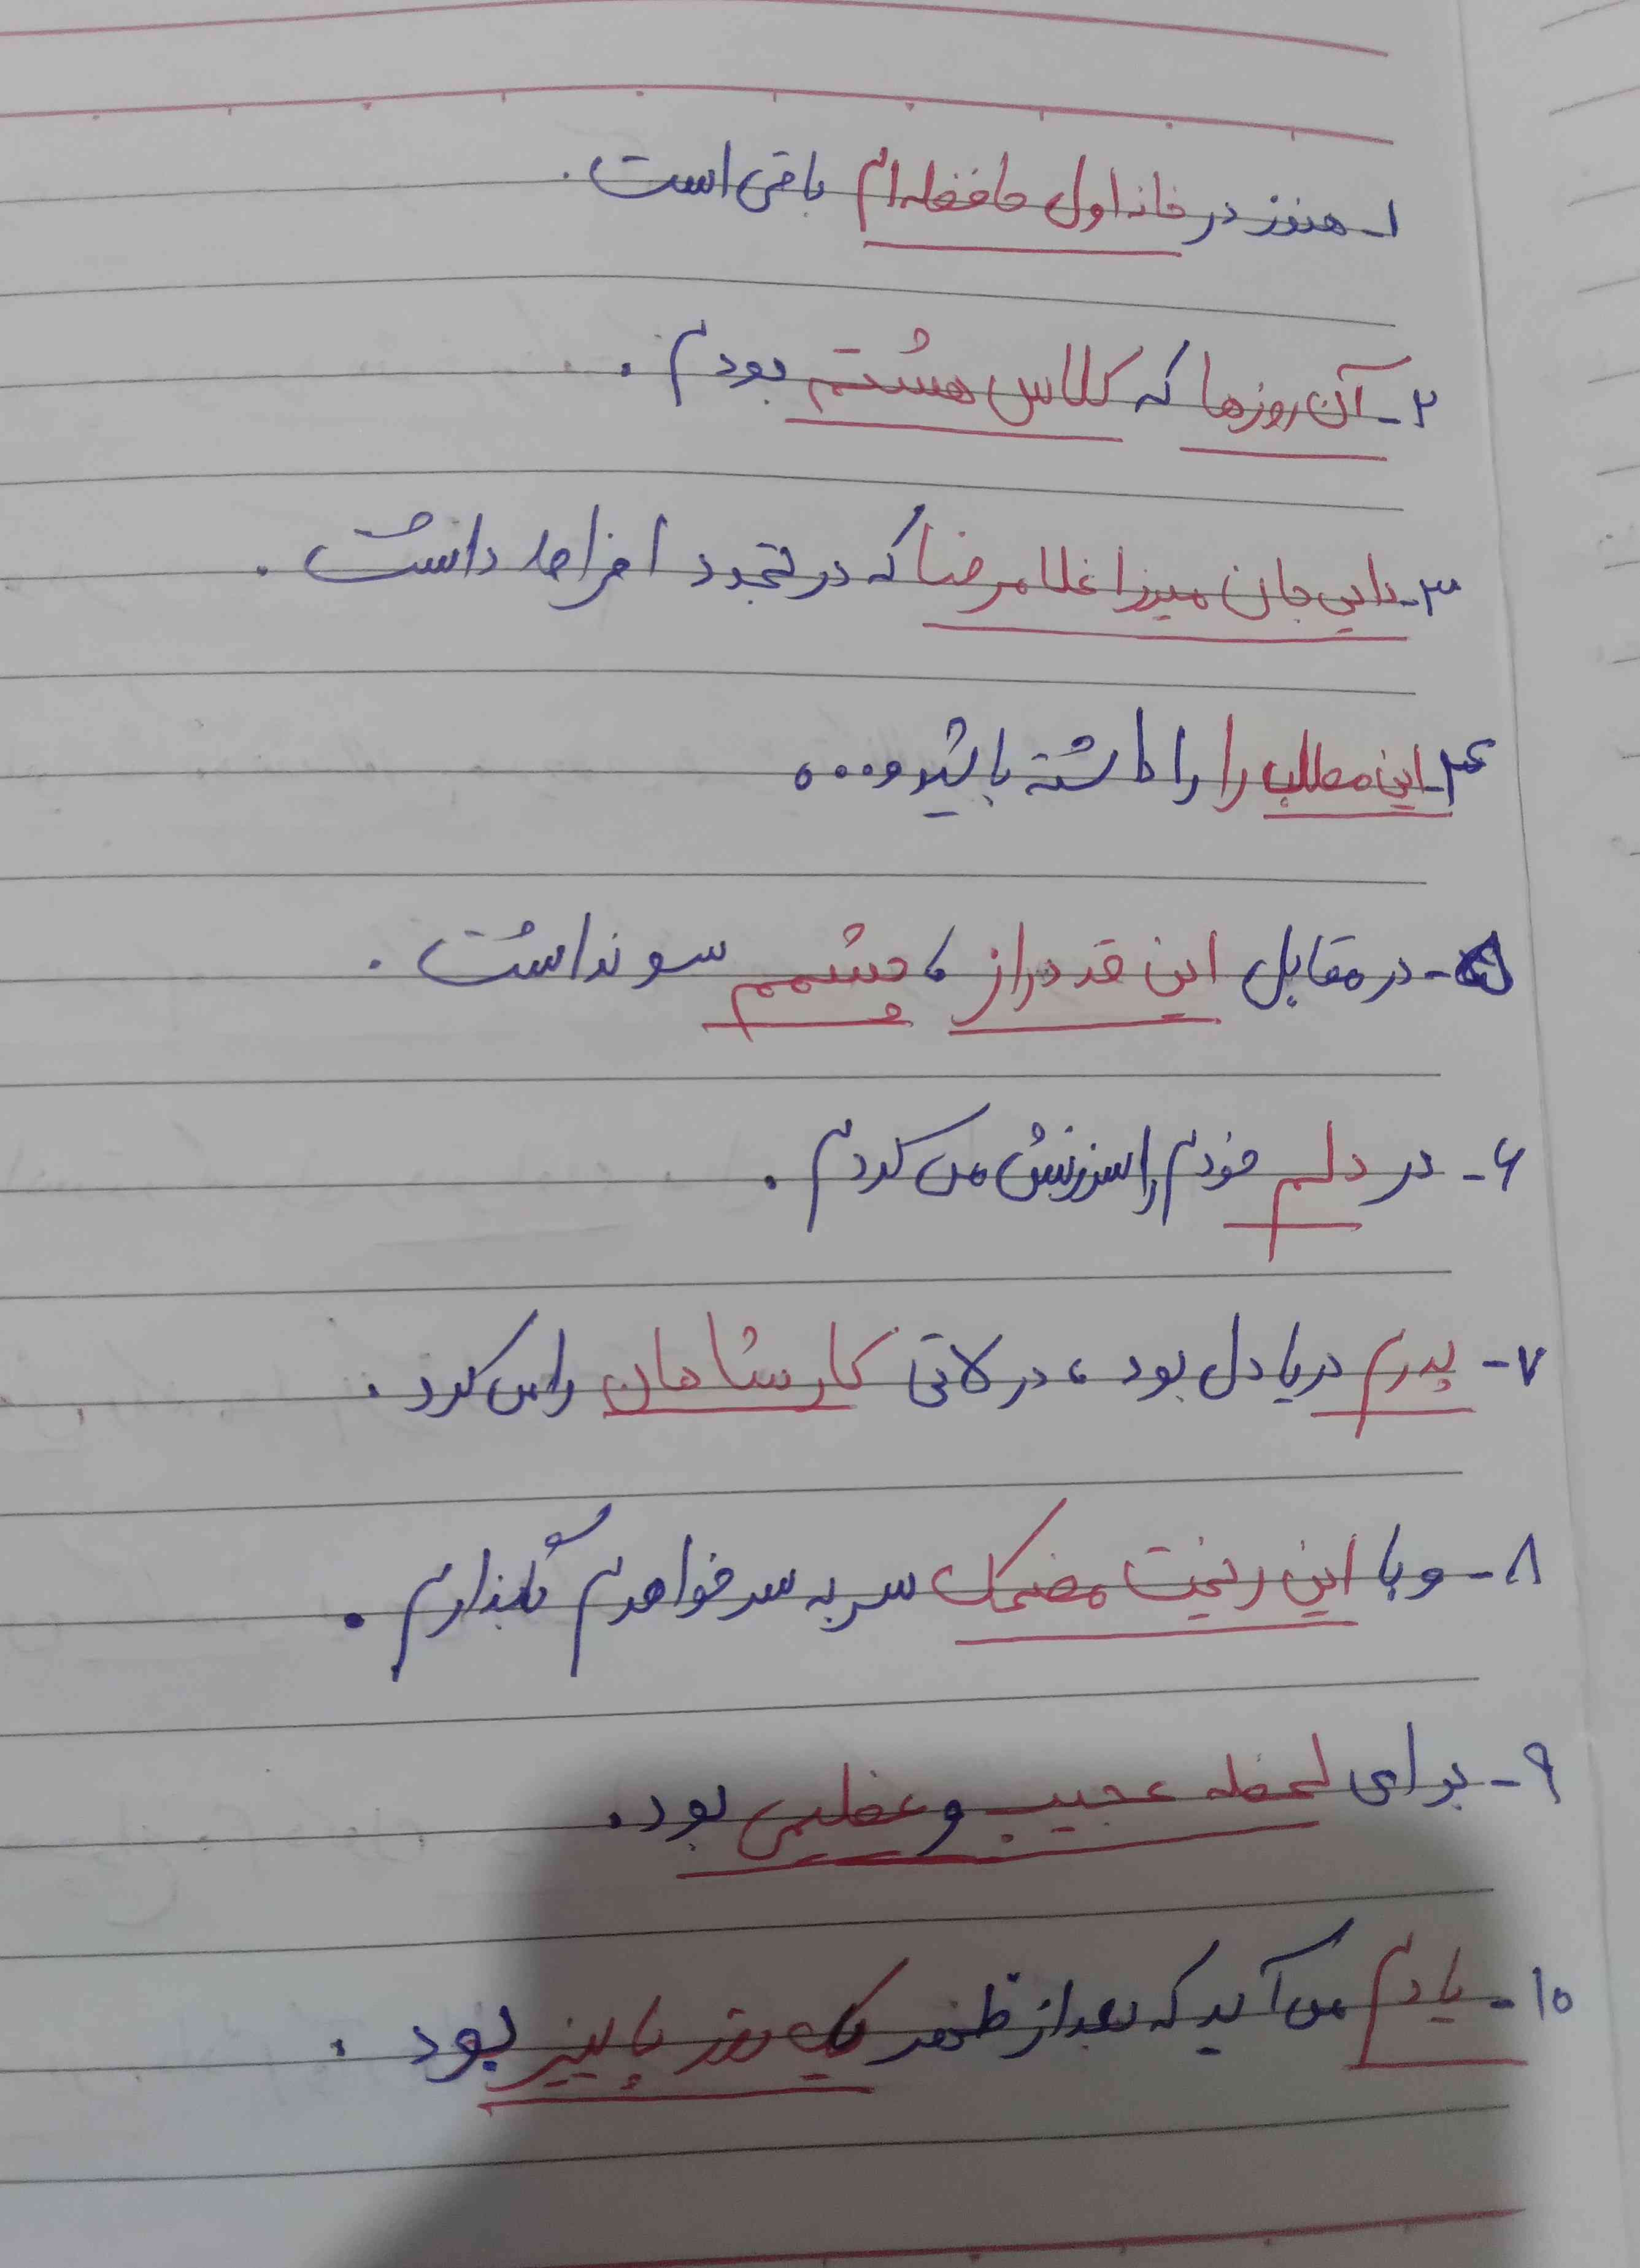 ۱- هنوز در خانه اول حافظه ام باقی است.
۲- آن روزها که کلاس هشتم بودم.
۳- دایی جان میرزا غلامرضا که در تجدد افراط داشت.
۴- این مطلب را داشته باشید و....
۵- در مقابل این قد دراز، چشمم سو نداشت.
۶- در دلم خودم را سرزنش می کردم.
۷- پدرم دریا دل بود، در لاتی کار شاهان را می کرد.
۸- و با این ریخت مضحک سر به سر خواهرم گذارم.
۹- برای لحظه عجیب و عظیمی بود.
۱۰- یادم می آید که بعد از ظهر یک روز پاییز بود.